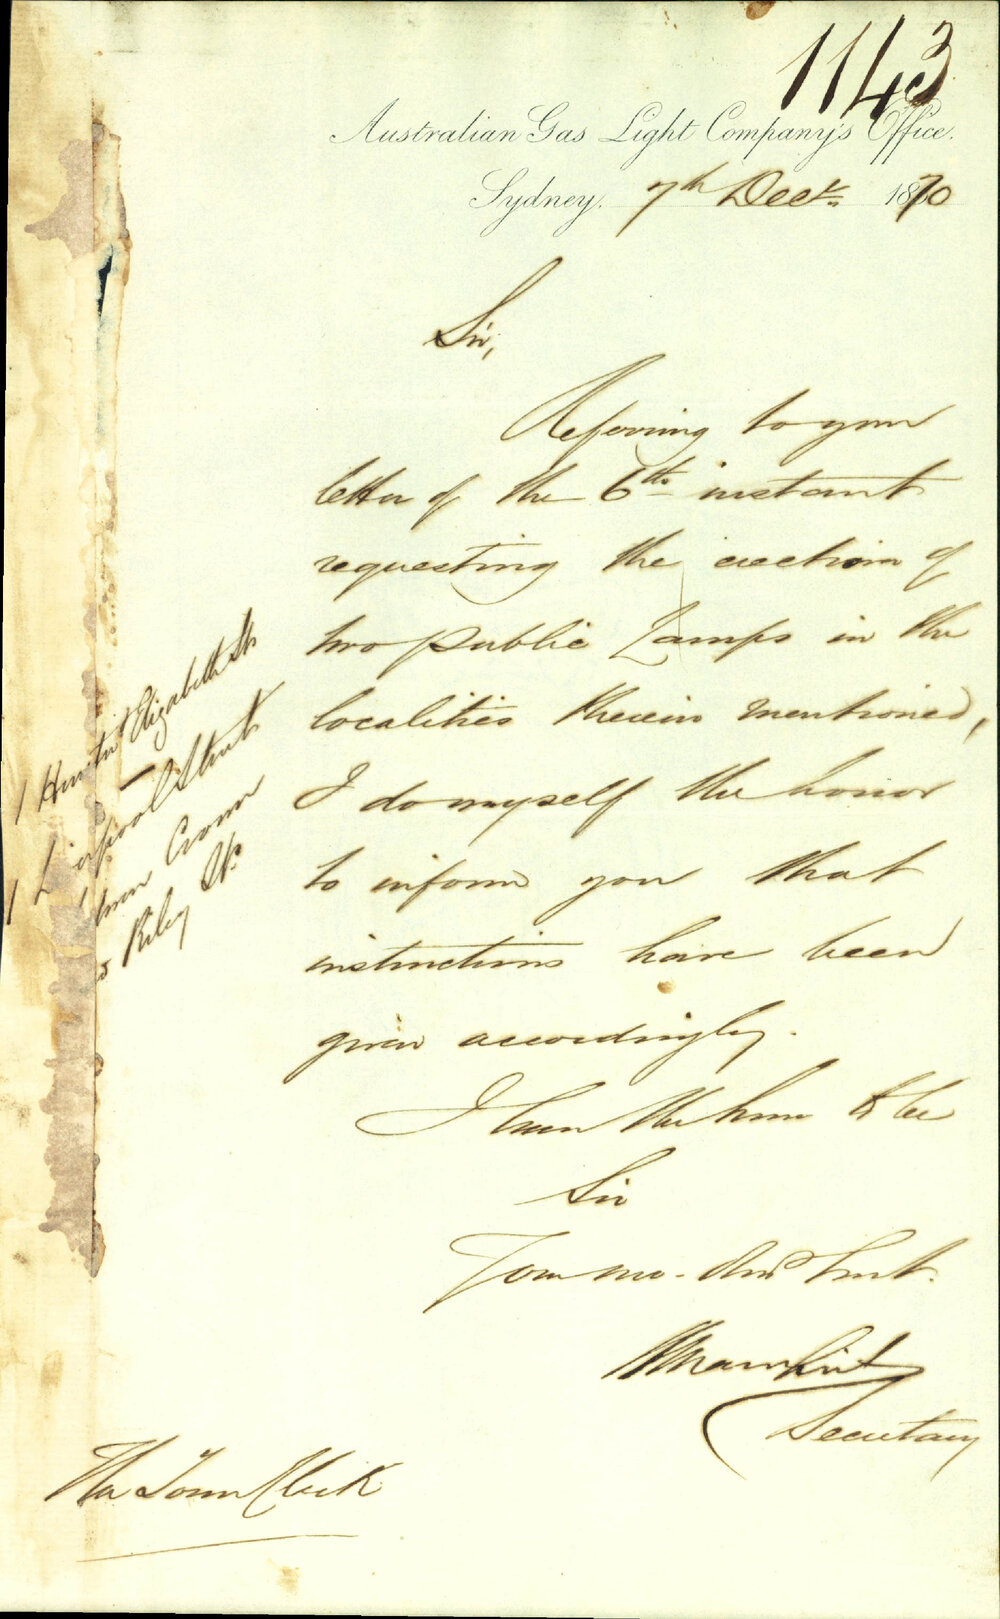 1143
Australian Gas Light Company's Office.
Sydney. 7th Decr. 1870
Sir,
Referring to your
letter of the 6th instant
requesting the erection of
two public Lamps in the
localities therein mentioned,
I do myself the honor
to inform you that
instructions have been
given accordingly.
I have the honor to be
Sir
Your mo. Obdt Servt.
Secretary
The Town Clerk
1 Hunter & Elizabeth Sts
1 Liverpool Street
btwn Crown
& Riley Sts